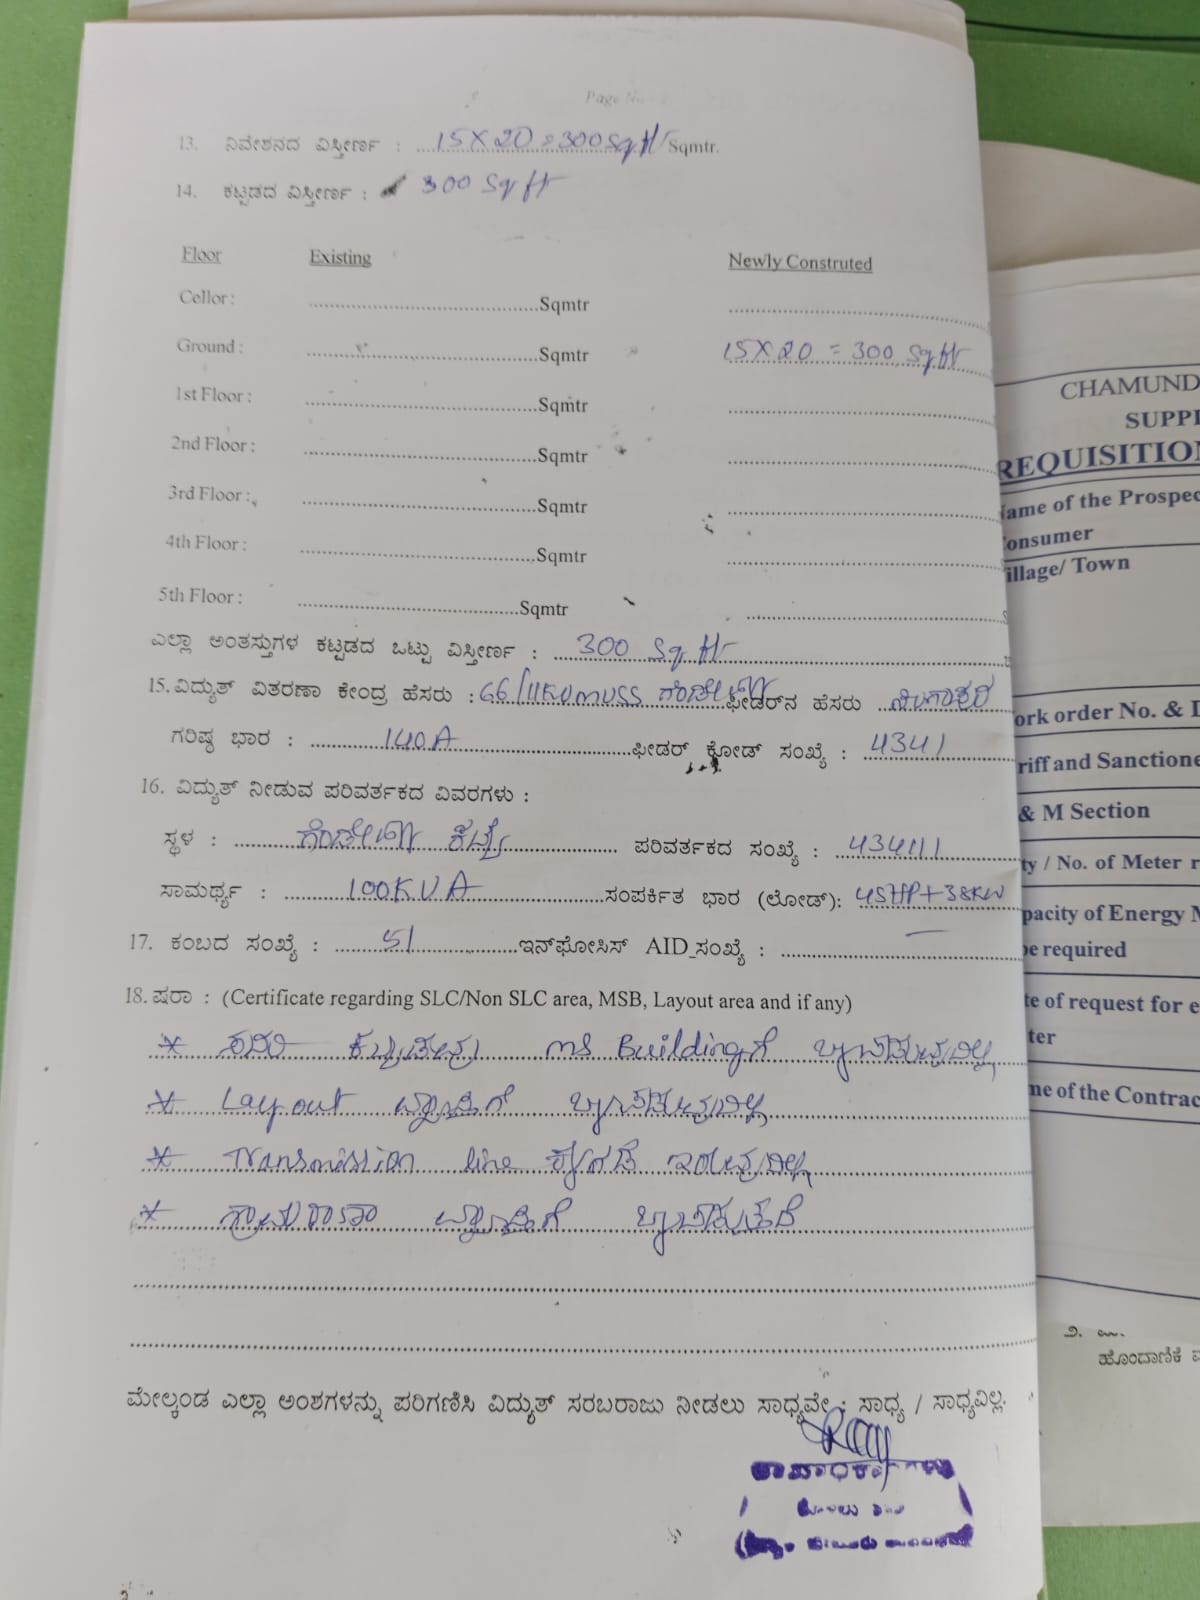 Page No
13. ನಿವೇಶನದ ವಿಸ್ತೀರ್ಣ : 15 X 20 = 300 Sq ft Sqmtr.
14. ಕಟ್ಟಡದ ವಿಸ್ತೀರ್ಣ : 300 Sq ft
Floor Existing Newly Construted
Collor : Sqmtr
Ground : Sqmtr 15 X 20 = 300 Sq ft
1st Floor : Sqmtr
2nd Floor : Sqmtr
3rd Floor : Sqmtr
4th Floor : Sqmtr
5th Floor : Sqmtr
ಎಲ್ಲಾ ಅಂತಸ್ತುಗಳ ಕಟ್ಟಡದ ಒಟ್ಟು ವಿಸ್ತೀರ್ಣ : 300 Sq ft
15. ವಿದ್ಯುತ್ ವಿತರಣಾ ಕೇಂದ್ರ ಹೆಸರು : 66/11KV MUSS ಫೀಡರ್‌ನ ಹೆಸರು
ಗರಿಷ್ಠ ಭಾರ : 140A ಫೀಡರ್ ಕೋಡ್ ಸಂಖ್ಯೆ : 4341
16. ವಿದ್ಯುತ್ ನೀಡುವ ಪರಿವರ್ತಕದ ವಿವರಗಳು :
ಸ್ಥಳ : ಪರಿವರ್ತಕದ ಸಂಖ್ಯೆ :
ಸಾಮರ್ಥ್ಯ : 100KVA ಸಂಪರ್ಕಿತ ಭಾರ (ಲೋಡ್): 45HP+38KW
17. ಕಂಬದ ಸಂಖ್ಯೆ : ಇನ್‌ಫೋಸಿಸ್ AID ಸಂಖ್ಯೆ : —
18. ಷರಾ : (Certificate regarding SLC/Non SLC area, MSB, Layout area and if any)
* ಸದರಿ ಕಟ್ಟಡವು MS Buildingಗೆ ಒಳಪಡುವುದಿಲ್ಲ
* Layout ವ್ಯಾಪ್ತಿಗೆ ಒಳಪಡುವುದಿಲ್ಲ
* Transmission line ಕೆಳಗಡೆ ಇರುವುದಿಲ್ಲ
* ಗ್ರಾಮಠಾಣಾ ವ್ಯಾಪ್ತಿಗೆ ಒಳಪಡುತ್ತದೆ
ಮೇಲ್ಕಂಡ ಎಲ್ಲಾ ಅಂಶಗಳನ್ನು ಪರಿಗಣಿಸಿ ವಿದ್ಯುತ್ ಸರಬರಾಜು ನೀಡಲು ಸಾಧ್ಯವೇ : ಸಾಧ್ಯ / ಸಾಧ್ಯವಿಲ್ಲ.
CHAMUND
SUPPL
REQUISITION
Name of the Prospec
Consumer
Village/ Town
ork order No. & D
riff and Sanctione
& M Section
ty / No. of Meter r
pacity of Energy M
be required
te of request for e
ter
me of the Contrac
೨.
ಹೊಂದಾಣಿಕೆ